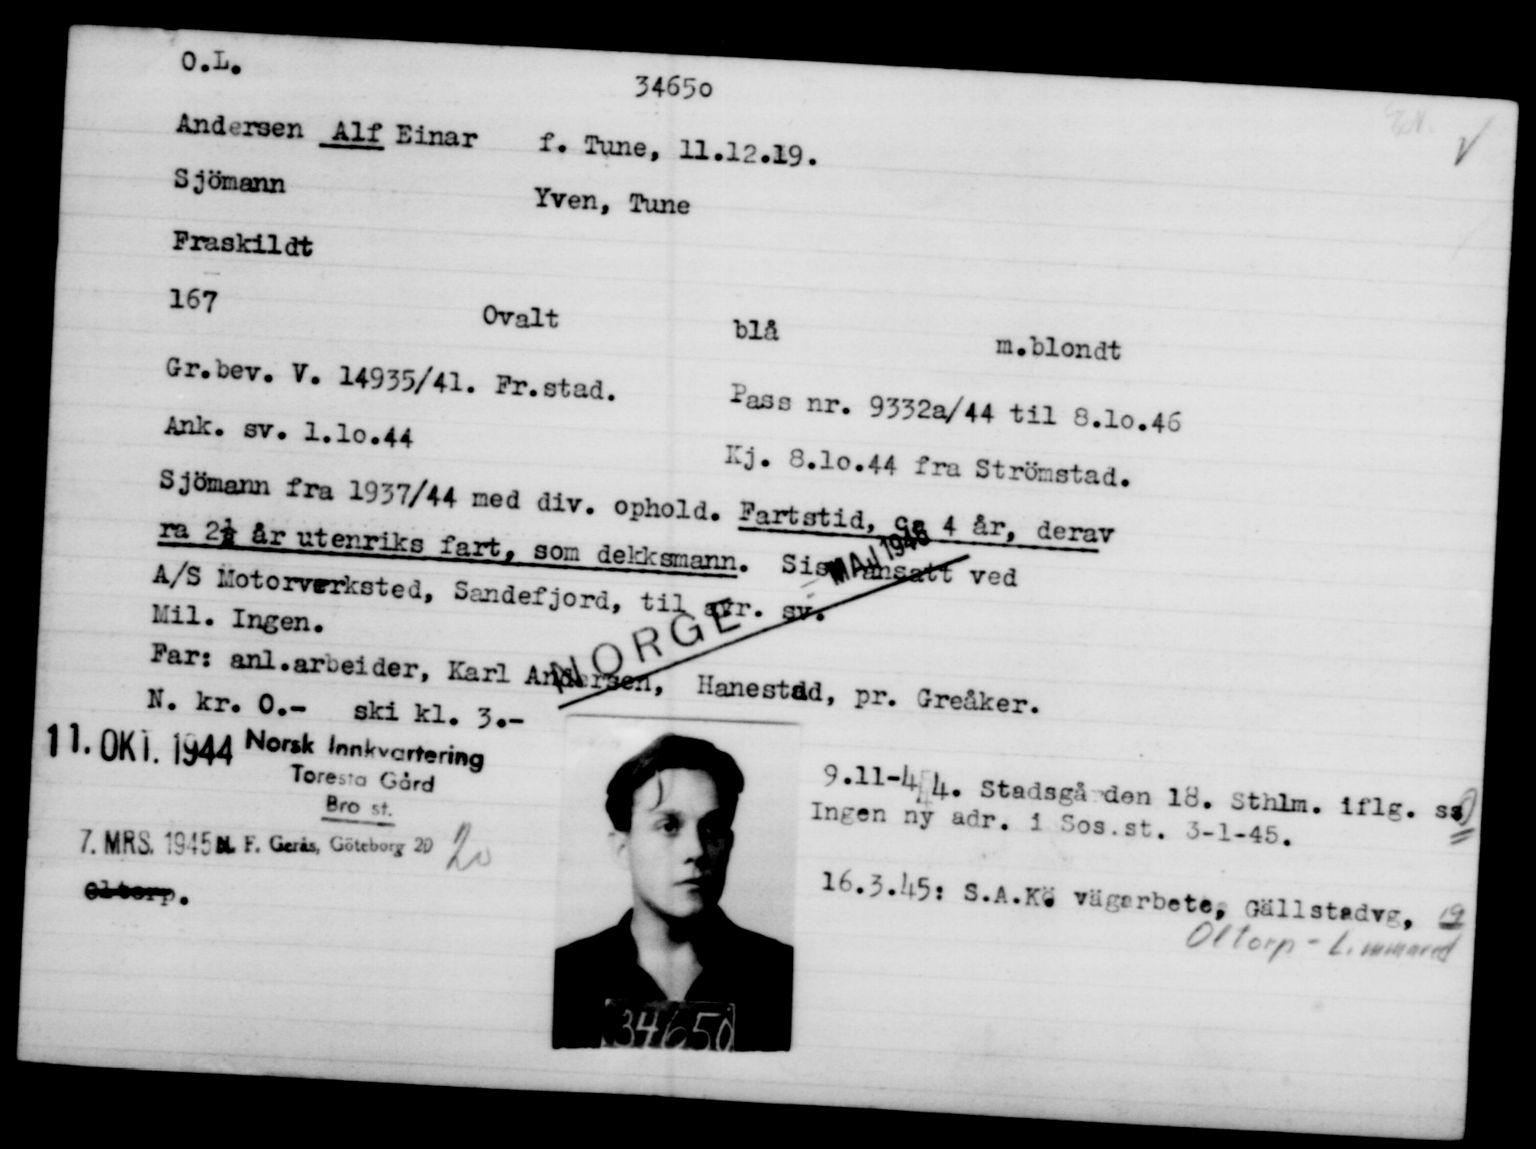 O.L.
34650
Andersen Alf Einar f. Tune, 11.12.19.
Sjömann Yven, Tune
Fraskildt
167 Ovalt blå m.blondt
Gr.bev. V. 14935/41. Fr.stad. Pass nr. 9332a/44 til 8.10.46
Ank. sv. 1.10.44 Kj. 8.10.44 fra Strömstad.
Sjömann fra 1937/44 med div. ophold. Fartstid, ca 4 år, derav
ra 2½ år utenriks fart, som dekksmann. Sist ansatt ved
MAJ 1946
A/S Motorverksted, Sandefjord, til avr. sv.
NORGE
Mil. Ingen.
Far: anl.arbeider, Karl Andersen, Hanestad, pr. Greåker.
N. kr. 0.- ski kl. 3.-
11. OKT. 1944 Norsk Innkvartering
Toresta Gård
Bro st.
7. MRS. 1945 F. Gerås, Göteborg 20 20
Oltorp.
9.11-44. Stadsgården 18. Sthlm. iflg. ss
Ingen ny adr. i Sos.st. 3-1-45.
16.3.45: S.A.K. vägarbete, Gällstadvg, 19
Oltorp - Limmared
34650